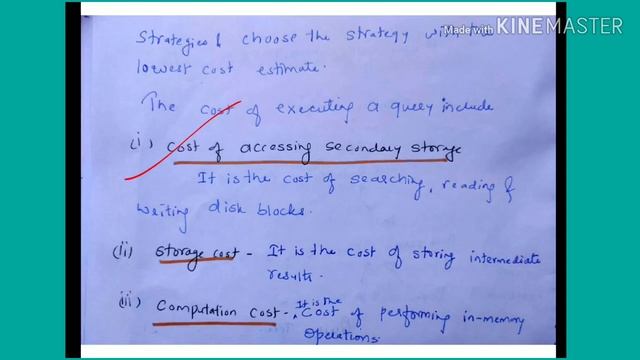 Made with KINEMASTER
Strategies & choose the strategy with the
lowest cost estimate.
The cost of executing a query include
(i) Cost of accessing secondary storage
It is the cost of searching, reading &
writing disk blocks.
(ii) Storage cost - It is the cost of storing intermediate
results.
(iii) Computation cost - It is the Cost of performing in-memory
operations.